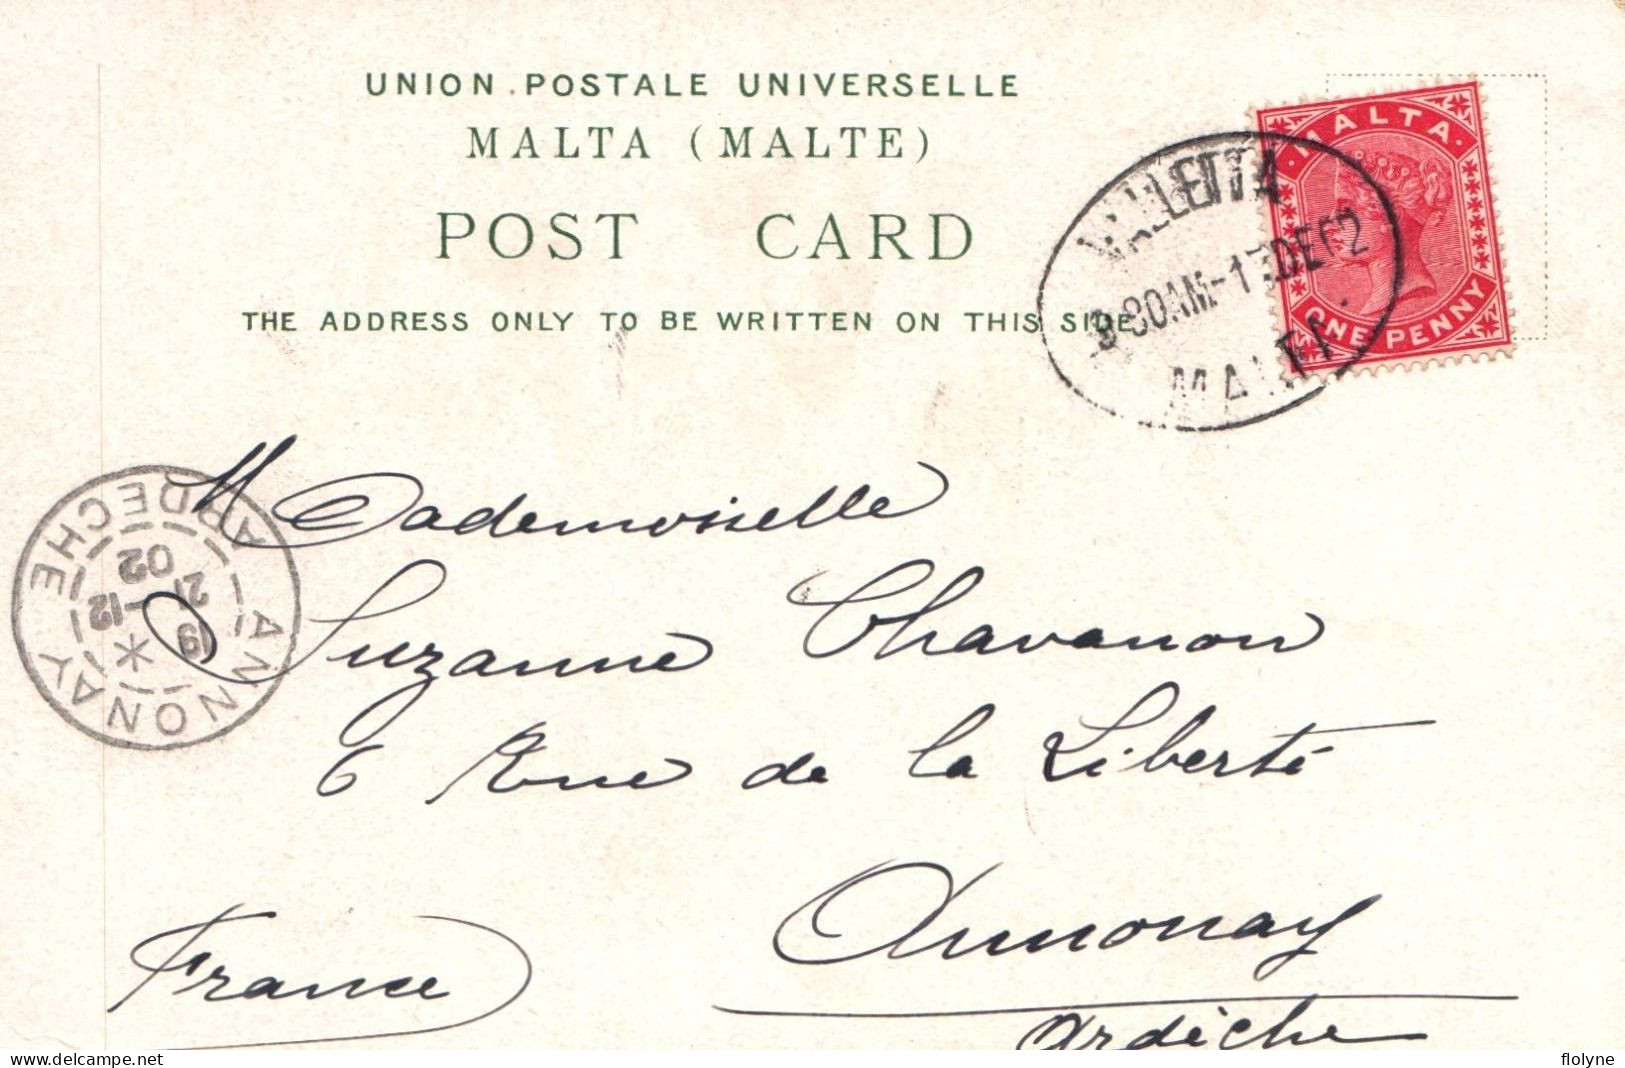 UNION POSTALE UNIVERSELLE
MALTA (MALTE)
POST CARD
THE ADDRESS ONLY TO BE WRITTEN ON THIS SIDE
MALTA
ONE PENNY
VALLETTA
MALTA
ANNONAY
ARDECHE
21-12
02
Mademoiselle
Suzanne Chavanon
6 Rue de la Liberté
Annonay
Ardèche
France
delcampe.net
flolyne